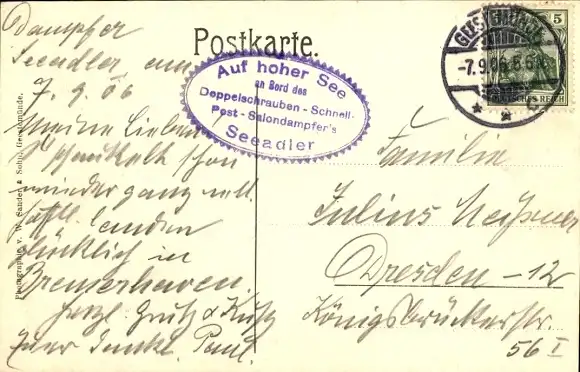 Postkarte.
Dampfer
Seeadler am
7.9.06
Meine Lieben
schon
wieder ganz
landen
glücklich in
Bremerhaven.
herzl. Gruß & Kuß
Paul.
Auf hoher See
an Bord des
Doppelschrauben - Schnell-
Post - Salondampfer's
Seeadler
GEESTEMÜNDE
-7.9.06.
5
DEUTSCHES REICH
Familie
Julius
Dresden - 12
Königsbrückerstr.
56 I
Photographie v. W. Sander & Sohn, Geestemünde.